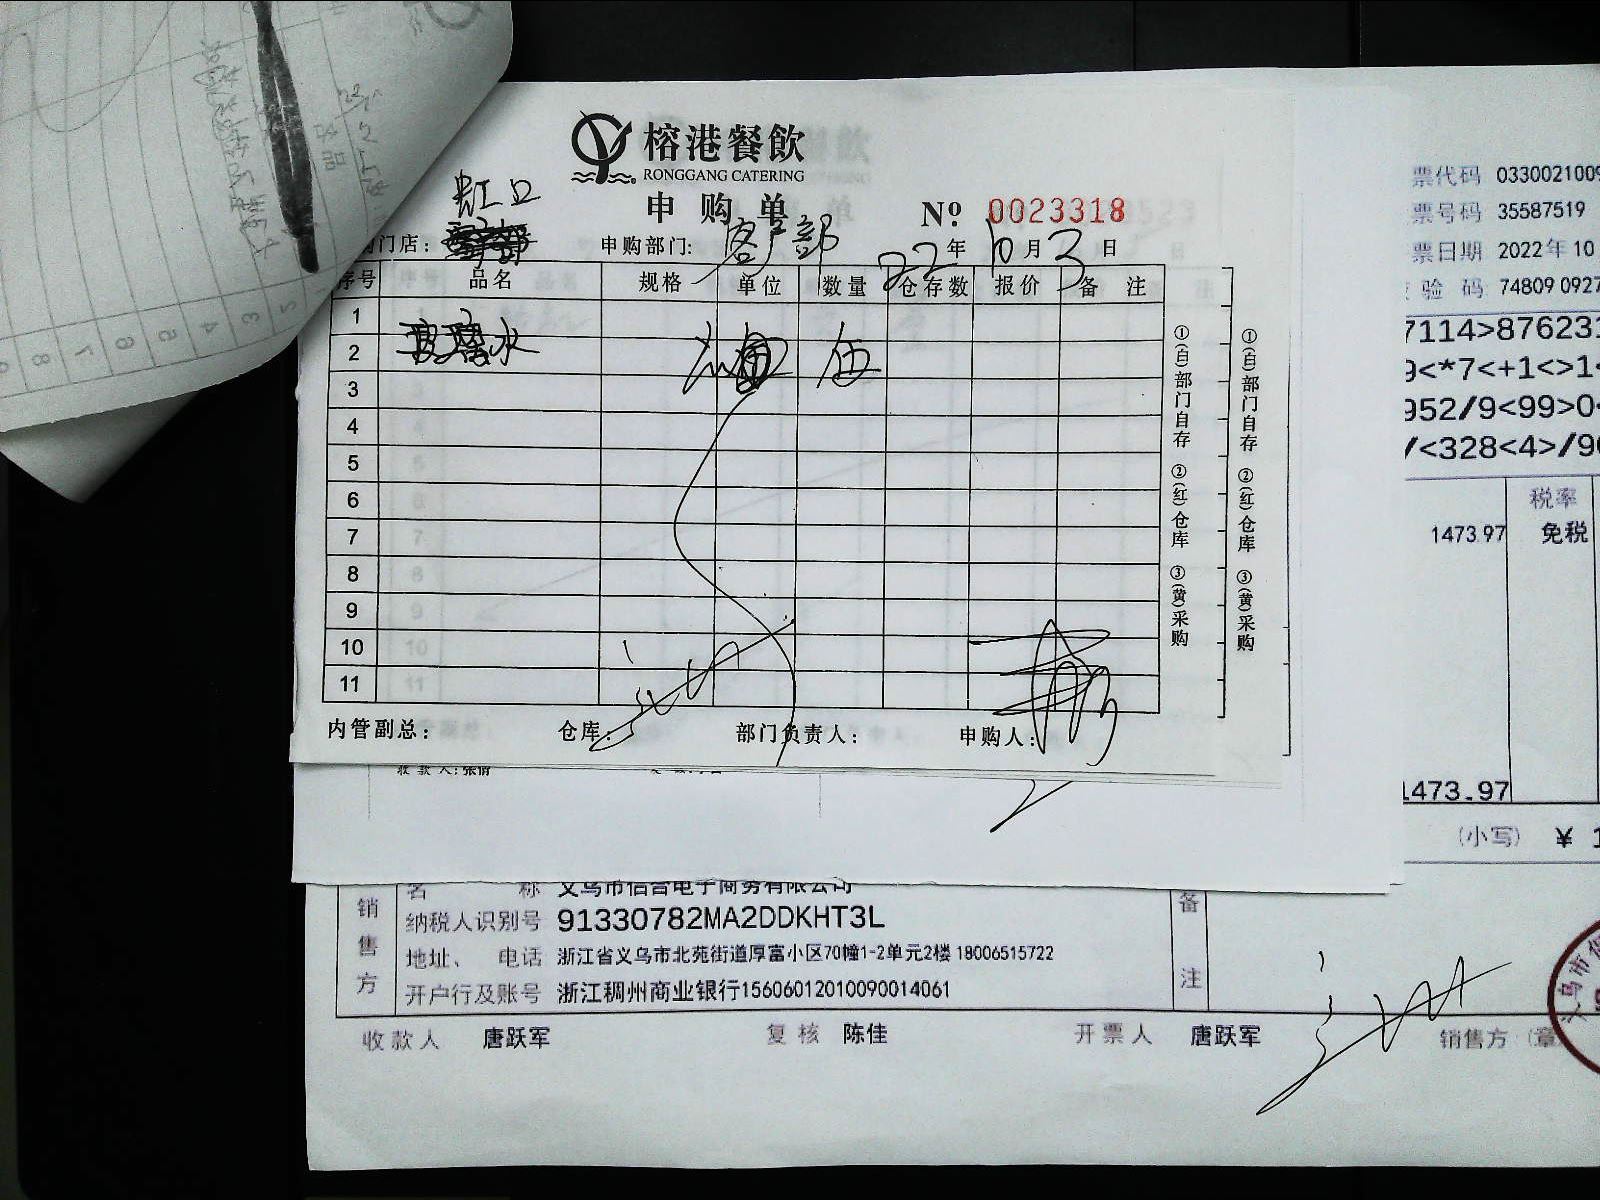 榕港餐飲
RONGGANG CATERING
申购单
№ 0023318
虹口
门店：
申购部门: 客户部
22年10月3日
序号 品名 规格 单位 数量 仓存数 报价 备 注
1
2 玻璃水 伍
3
4
5
6
7
8
9
10
11
①(白)部门自存 ②(红)仓库 ③(黄)采购
①(白)部门自存 ②(红)仓库 ③(黄)采购
内管副总： 仓库： 部门负责人： 申购人：
收款人：张倩
票代码 0330021009
票号码 35587519
票日期 2022年10
验 码 74809 0927
7114>876231
9<*7<+1<>1<
952/9<99>0<
/<328<4>/90
税率
1473.97 免税
1473.97
(小写) ¥ 1
销售方
名 称 义乌市信合电子商务有限公司
纳税人识别号 91330782MA2DDKHT3L
地址、 电话 浙江省义乌市北苑街道厚富小区70幢1-2单元2楼 18006515722
开户行及账号 浙江稠州商业银行15606012010090014061
备注
收款人 唐跃军 复核 陈佳 开票人 唐跃军 销售方 (章)
义乌市信